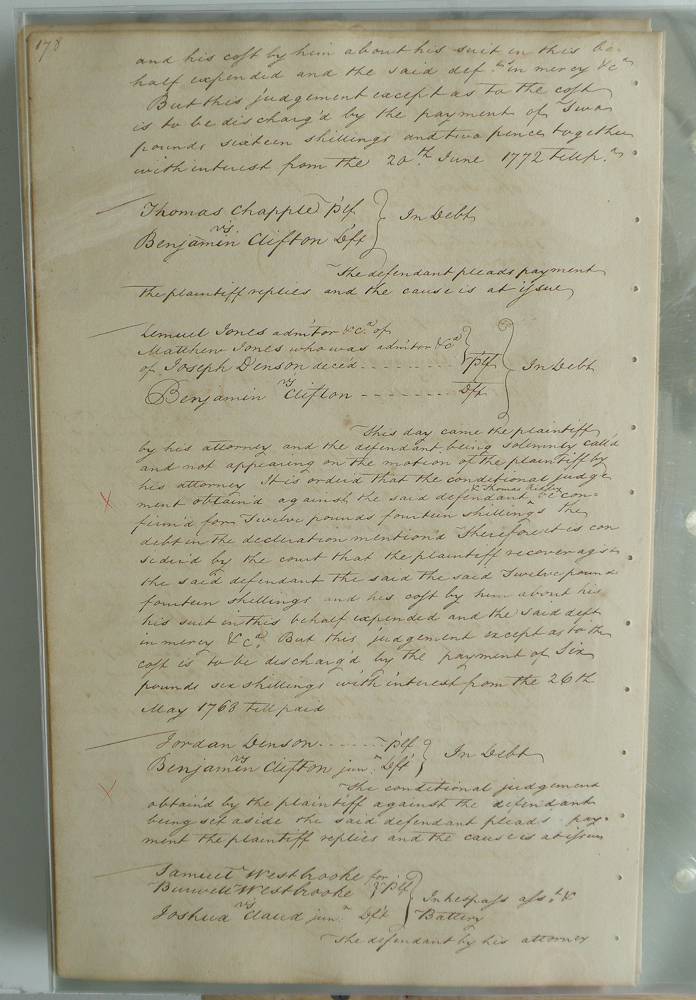 178
and his cost by him about his suit in this be-
half expended and the said def.ts in mercy &c.a
But this judgement except as to the cost
is to be discharg'd by the payment of Two
pounds sixteen shillings and two pence together
with interest from the 20.th June 1772 till p.d
Thomas Chapple Plf
vs
Benjamin Clifton Dft
In Debt
The defendant pleads payment
the plaintiff replies and the cause is at issue
Lemuel Jones admitor &c.a of
Matthew Jones who was admitor &c.a
of Joseph Denson deced - - - - - - - - - Plf
vs
Benjamin Clifton - - - - - - - - Dft
In Debt
This day came the plaintiff
by his attorney and the defendant being solemnly call'd
and not appearing on the motion of the plaintiff by
his attorney It is ordered that the conditional judge-
& Thomas Ridley
ment obtain'd against the said defendant be con-
firm'd for Twelve pounds fourteen shillings the
debt in the declaration mention'd Therefore it is con
sider'd by the court that the plaintiff recover agst
the said defendant the said the said Twelve pound
fourteen shillings and his cost by him about his
his suit in this behalf expended and the said deft
in mercy &c.a But this judgement except as to the
cost is to be discharg'd by the payment of Six
pounds six shillings with interest from the 26th
May 1768 till paid
Jordan Denson - - - - - - Plf
vs
Benjamin Clifton jun.r Dft
In Debt
The conditional judgement
obtain'd by the plaintiff against the defendant
being set aside the said defendant pleads pay-
ment the plaintiff replies and the cause is at issue
Samuel Westbrooke for
Burwell Westbrooke Plf
vs
Joshua Claud jun.r Dft
In trespass ass.t &
Battery
The defendant by his attorney